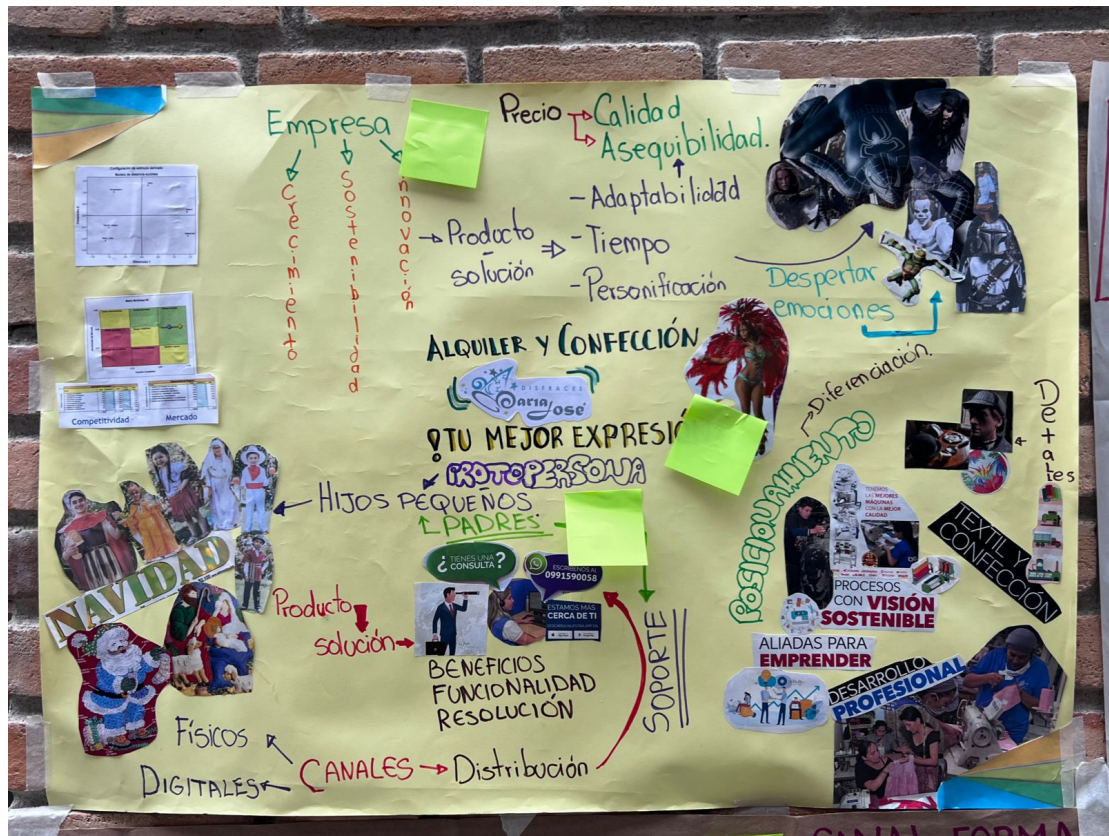 Empresa
Crecimiento
Sostenibilidad
nnovación
Precio
Calidad
Asequibilidad.
Producto
solución
- Adaptabilidad
- Tiempo
- Personificación
Despertar
emociones
ALQUILER Y CONFECCIÓN
DISFRACES
María
José
¡TU MEJOR EXPRESIÓ
PROTOPERSONA
HIJOS PEQUEÑOS
PADRES.
Competitividad
Mercado
NAVIDAD
¿TIENES UNA
CONSULTA?
ESCRÍBENOS AL
0991590058
ESTAMOS MÁS
CERCA DE TI
Producto
solución
BENEFICIOS
FUNCIONALIDAD
RESOLUCIÓN
SOPORTE
Físicos
DIGITALES
CANALES
Distribución
Diferenciación.
POSICIONAMIENTO
Detalles
TENEMOS
LAS MEJORES
MÁQUINAS
CON LA MEJOR
CALIDAD
TEXTIL Y
CONFECCIÓN
PROCESOS
CON VISIÓN
SOSTENIBLE
ALIADAS PARA
EMPRENDER
DESARROLLO
PROFESIONAL
CANAL FORMA